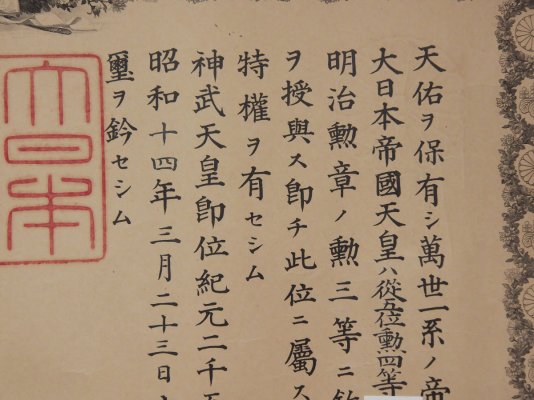 天佑ヲ保有シ萬世一系ノ帝
大日本帝國天皇ハ從五位勲四等
明治勲章ノ勲三等ニ
ヲ授與ス卽チ此位ニ屬ス
特權ヲ有セシム
神武天皇卽位紀元二千
昭和十四年三月二十三日
璽ヲ鈐セシム
大日本